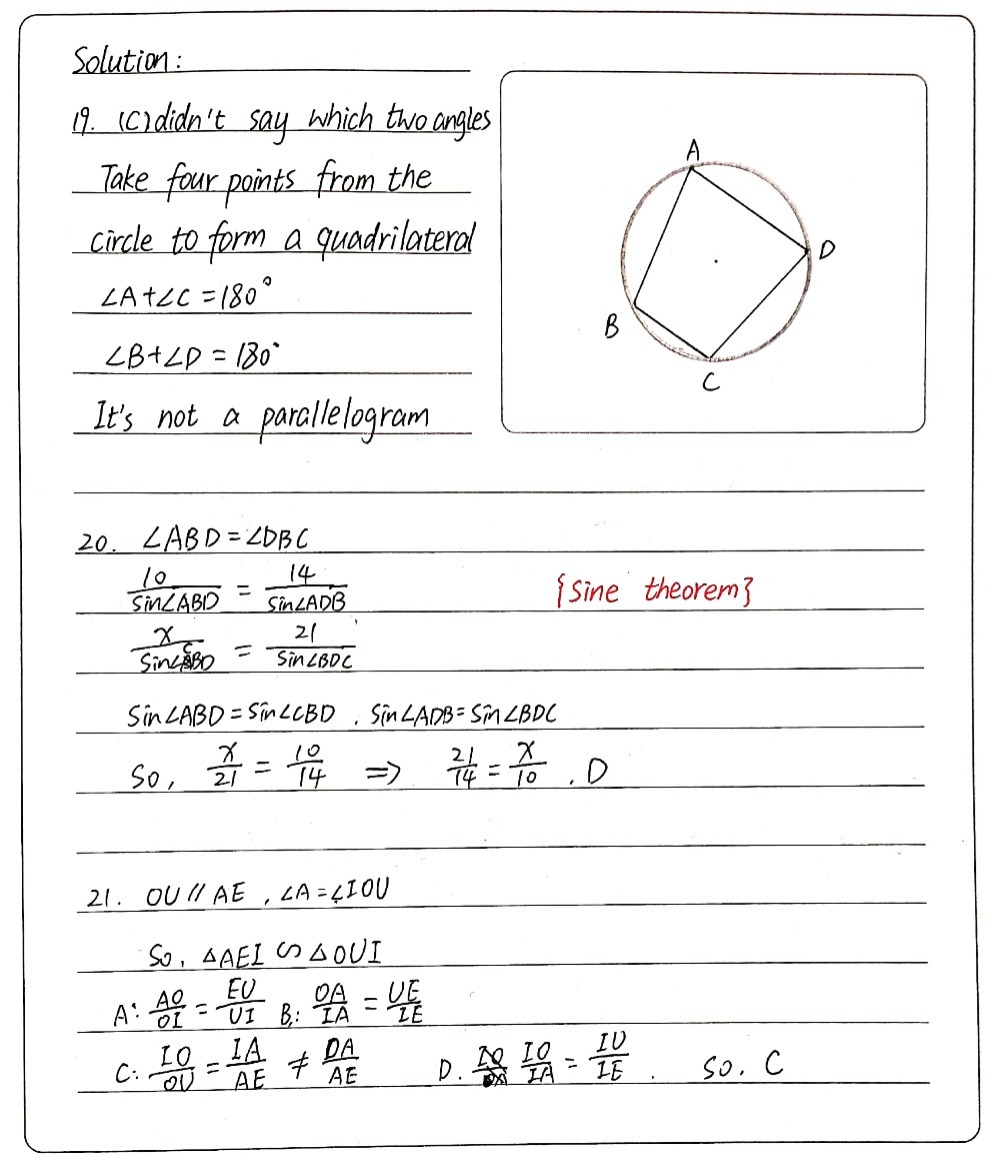 Solution:
19. (C) didn't say which two angles
Take four points from the
circle to form a quadrilateral
∠A+∠C=180°
∠B+∠D=180°
It's not a parallelogram
A
D
B
C
20. ∠ABD=∠DBC
10/sin∠ABD = 14/sin∠ADB {Sine theorem}
x/sin∠CBD = 21/sin∠BDC
sin∠ABD=sin∠CBD, sin∠ADB=sin∠BDC
So, x/21 = 10/14 => 21/14 = x/10, D
21. OU//AE, ∠A=∠IOU
So, △AEI∽△OUI
A: AO/OI = EU/UI B: OA/IA = UE/IE
C: IO/OU = IA/AE ≠ OA/AE D. IO/IA = IU/IE. So, C